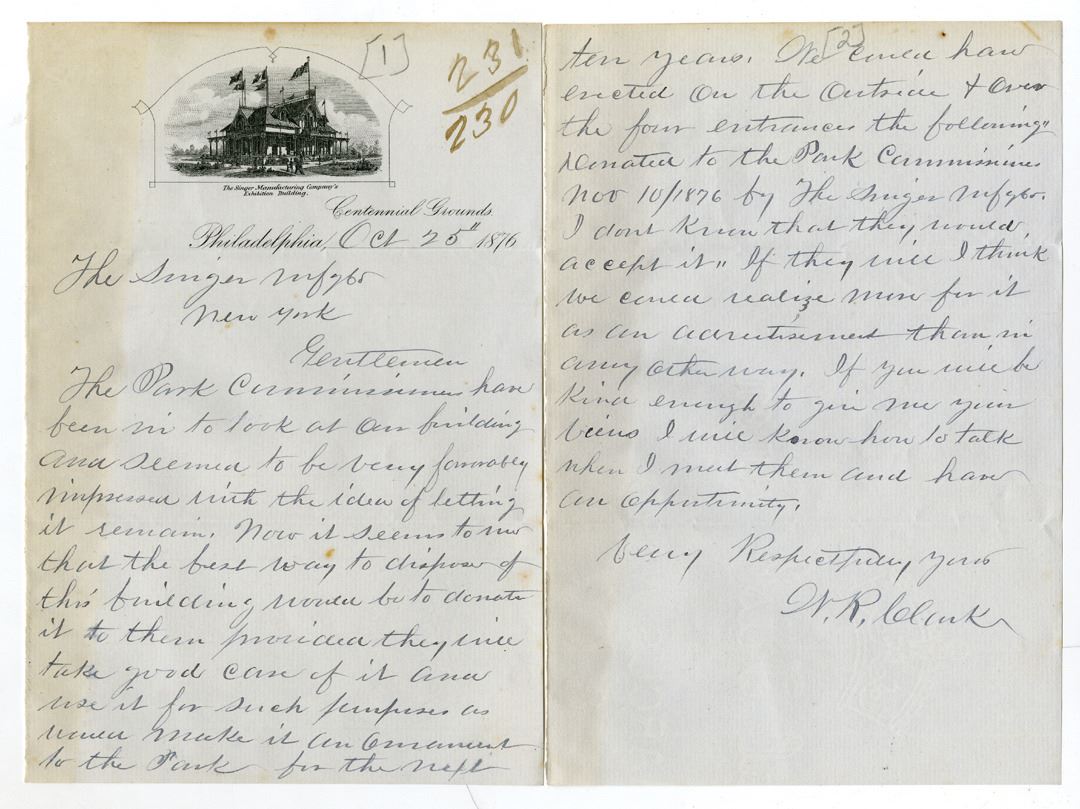 [1]
231
230
The Singer Manufacturing Company's
Exhibition Building.
Centennial Grounds.
Philadelphia, Oct 25" 1876
The Singer Mfg Co
New York
Gentlemen
The Park Commissioners have
been in to look at our building
and seemed to be very favorably
impressed with the idea of letting
it remain. Now it seems to me
that the best way to dispose of
this building would be to donate
it to them provided they will
take good care of it and
use it for such purposes as
would make it an ornament
to the Park for the next
[2]
ten years. We could have
erected on the outside & over
the four entrances the following "
Donated to the Park Commissioners
Nov 10/1876 by The Singer Mfg Co.
I dont know that they would,
accept it " If they will I think
we could realize more for it
as an advertisement than in
any other way. If you will be
kind enough to give me your
views I will know how to talk
when I meet them and have
an opportunity.
Very Respectfully yours
W. R. Clark